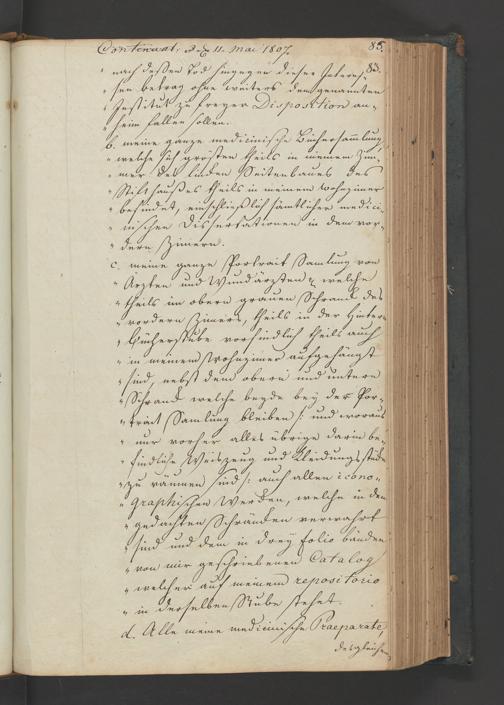 Continuat: d. 11. Mai 1807. 85.
83.
" nach deßen Tod hingegen dieser Interes-
" sen betrag ohne weiters dem genannten
" Institut zu freyer Disposition an-
" heim fallen sollen.
b. meine ganze medicinische Büchersammlung,
" welche sich grösten theils in meinem Zim-
" mer des linken Seitenbaues des
" Stifthaußes theils in meinem wohnzimer
" befindet, einschließlich sämtlicher medici-
" nischen Dissertationen in dem vor-
" dern Zimern.
c. meine ganze Portrait Samlung von
" Aerzten und Wundärzten welche
" theils in obern grauen Schrank des
" vordern Zimers, theils in der hintern
" Bücherstube vorfindlich theils auch
" in meinem Wohnzimer aufgehängt
" sind, nebst dem obern und untern
" Schrank welche beyde bey der Por-
" trait Samlung bleiben /: und woraus
" nur vorher alles übrige darin be-
" findliche Weiszeug und Kleidungsstücke
" zu räumen sind :/ auch allen icono-
" graphischen Werken, welche in den
" gedachten Schränken verwahrt
" sind und dem in drey folio bänden
" von mir geschriebenen Catalog
" welcher auf meinem repositorio
" in derselben Stube stehet.
d. Alle meine medicinische Praeparate,
desgleichen